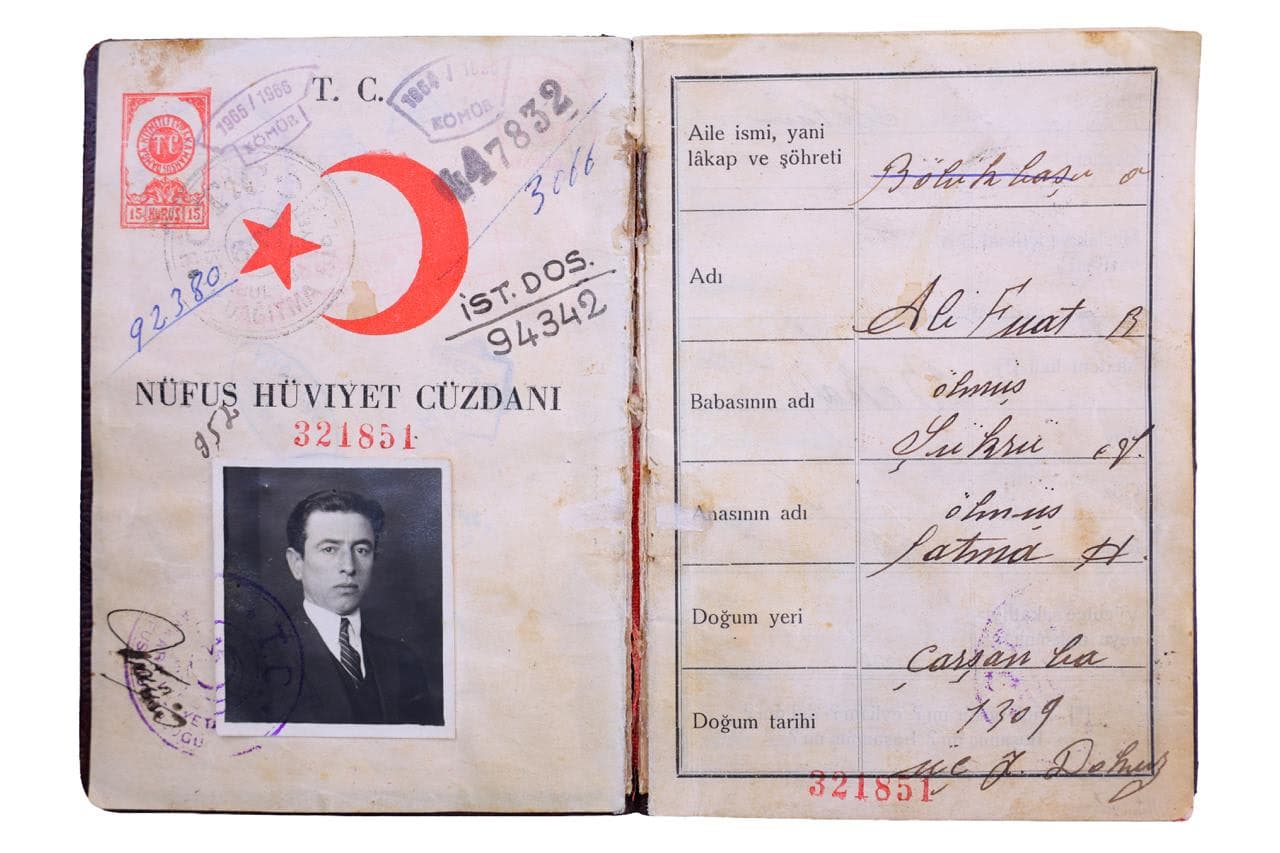 T. C.
1965 / 1966
KÖMÜR
KÖMÜR
447832
3066
T C
15 KURUŞ 15
DAĞITMA
92380
İST. DOS.
94342
NÜFUS HÜVİYET CÜZDANI
952
321851
T. C.
Aile ismi, yani
lâkap ve şöhreti
Bölükbaşı
Adı
Ali Fuat
Babasının adı
ölmüş
Şükrü
Anasının adı
ölmüş
Fatma H.
Doğum yeri
Çarşanba
Doğum tarihi
1309
üç Dokuz
321851